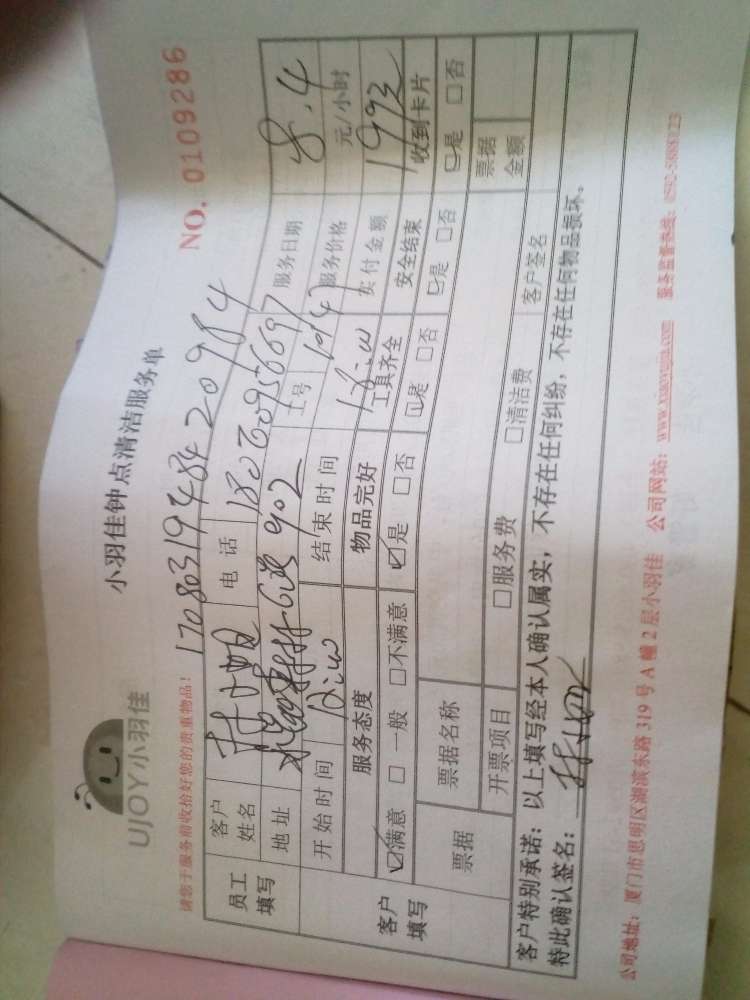 UJOY小羽佳
小羽佳钟点清洁服务单
NO. 0109286
请您于服务前收拾好您的贵重物品!
1708031948420984
员工填写 客户姓名 电话 服务日期 8.4
地址 902 工号 服务价格 元/小时
开始时间 结束时间 实付金额
客户填写 服务态度 物品完好 工具齐全 安全结束 收到卡片
☑满意 □一般 □不满意 ☑是 □否 ☑是 □否 ☑是 □否 ☑是 □否
票据 票据名称 票据金额
开票项目 □服务费 □清洁费 客户签名
客户特别承诺:以上填写经本人确认属实,不存在任何纠纷,不存在任何物品损坏。
特此确认签名:
公司地址:厦门市思明区湖滨东路319号A幢2层小羽佳 公司网站:www.xiaoyujia.com 服务监督热线: